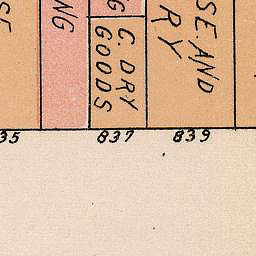 NG
G
C. DRY
GOODS
SE. AND
RY
35
837
839